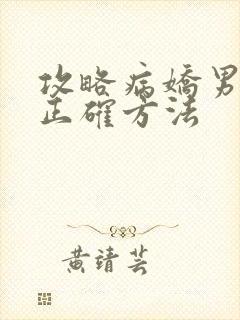 攻略病嬌男
正確方法
黄靖芸